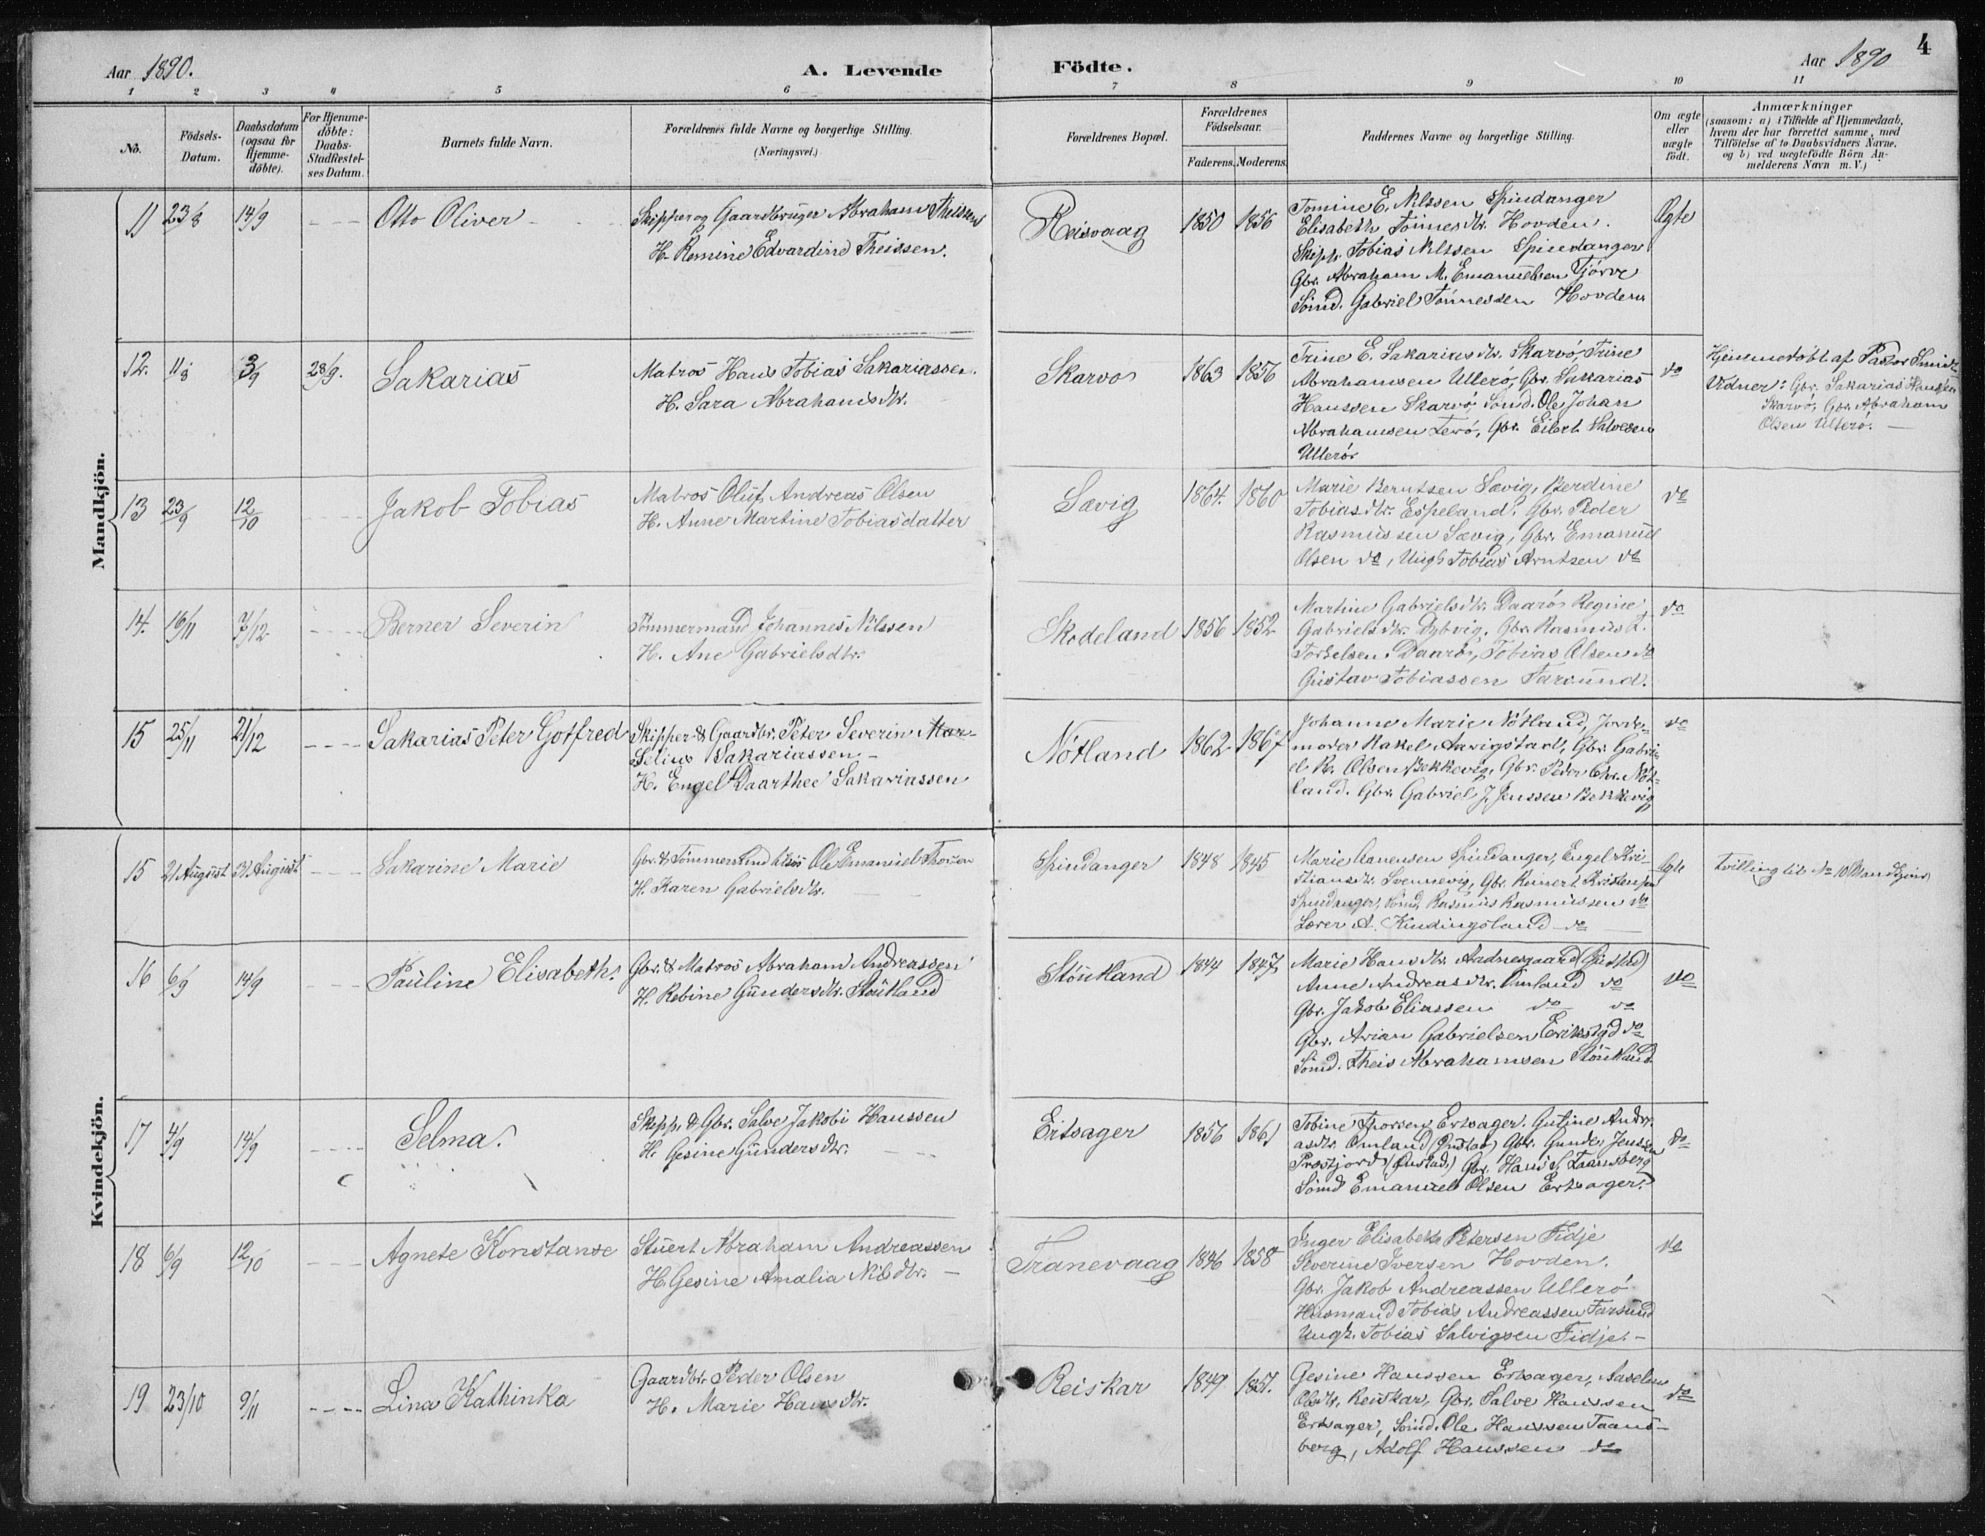 4
Aar 1890.
A. Levende Födte.
Aar 1890
1 2 3 4 5 6 7 8 9 10 11
No.
Födsels-
Datum.
Daabsdatum
(ogsaa for
Hjemme-
döbte).
For Hjemme-
döbte:
Daabs-
Stadfæstel-
ses Datum.
Barnets fulde Navn.
Forældrenes fulde Navne og borgerlige Stilling.
(Næringsvei.)
Forældrenes Bopæl.
Forældrenes
Födselsaar.
Faderens. Moderens.
Faddernes Navne og borgerlige Stilling.
Om ægte
eller
uægte
födt.
Anmærkninger
(saasom: a) i Tilfælde af Hjemmedaab,
hvem der har forrettet samme, med
Tilföielse af to Daabsvidners Navne.
og b) ved uægtefödte Börn An-
melderens Navn m. V.)
Mandkjön.
11 23/8 14/9 Otto Oliver
Skipper og Gaardbruger Abraham Theissen
H. Romine Edvardine Theissen.
Reisvaag 1850 1856
Tomine E. Nilssen Spindanger
Elisabeth Tönnesdtr. Hovden.
Skipp. Tobias Nilssen Spindanger
Gbr. Abraham M. Emanuelsen Tjörve
Sömd. Gabriel Tönnessen Hovden
Ægte
12. 11/8 3/9 28/9. Sakarias
Matros Hans Tobias Sakariassen.
H. Sara Abrahamsdtr.
Skarvö 1863 1856
Trine E. Sakariasdtr. Skarvö, Trine
Abrahamsen Ullerö, Gbr. Sakarias
Hanssen Skarvö, Sömd. Ole Johan
Abrahamsen Lerö, Gbr. Eilert Salvesen
Ullerö
do
Hjemmedöbt af Pastor Smidt
Vidner: Gbr. Sakarias Hanssen
Skarvö, Gbr. Abraham
Olsen Ullerö.
13 23/9 12/10 Jakob Tobias
Matros Oluf Andreas Olsen
H. Anne Martine Tobiasdatter
Sævig 1864. 1860
Marie Berntsen Sævig, Berdine
Tobiasdtr. Espeland. Gbr. Peder
Rasmussen Sævig, Gbr. Emanuel
Olsen do, Ungk. Tobias Arntsen do
do
14. 16/11 7/12. Berner Severin
Tömmermand Johannes Nilssen
H. Ane Gabrielsdtr.
Skodeland 1856 1852
Martine Gabrielsdtr. Daarö, Regine
Gabrielsdtr. Dybvig, Gbr. Rasmus T.
Torkelsen Daarö, Tobias Olsen do
Gustav Tobiassen Farsund.
do
15 25/11 21/12 Sakarias Peter Gotfred
Skipper & Gaardbr. Peter Severin Mar-
selius Sakariassen
H. Engel Daarthee Sakariassen
Nötland 1862 1867
Johanne Marie Nötland, Jorde-
moder Rakel Aavigstad, Gbr. Gabri-
el R. Olsen Bekkevig, Gbr. Peder Chr. Nöt-
land. Gbr. Gabriel J. Jenssen Bekkevig
do
Kvindekjön.
15 21 August 31 August Sakarine Marie
Gbr. & Tömmermand Ole Emanuel Thorsen
H. Karen Gabrielsdtr.
Spindanger 1848 1845
Marie Aanensen Spindanger, Engel Kri-
stiansdtr. Svennevig, Gbr. Reinert Kristensen
Spindanger, Sömd. Rasmus Rasmussen do
Lærer A. Kindingsland do
Ægte
Tvilling til No 10 Mandkjön
16 6/9 14/9 Pauline Elisabeth.
Gbr. & Matros Abraham Andreassen
H. Rebine Gundersdtr. Stöutland
Stöutland 1844 1847
Marie Hansdtr. Andnesgaard (Oustad)
Anne Andreasdtr. Omland do
Gbr. Jakob Eliassen do do
Gbr. Arian Gabrielsen Erikstad do
Sömd. Theis Abrahamsen Stöutland
do
17 4/9 14/9 Selma.
Skipp. & Gbr. Salve Jakobi Hanssen
H. Gesine Gundersdtr.
Ertsager 1856 1861
Tobine Thorsen Ertsager. Gutine Andre-
asdtr. Omland (Oustad) Gbr. Gunder Jenssen
Prestjord (Oustad.) Gbr. Hans S. Taansberg
Sömd Emanuel Olsen Ertsager.
do
18 6/9 12/10 Agnete Konstanse
Stuert Abraham Andreassen
H. Gesine Amalia Nilsdtr.
Tranevaag 1846 1858
Inger Elisabeth Petersen Fidje
Severine Iversen Hovden.
Gbr. Jakob Andreassen Ullerö
Husmand Tobias Andreassen Farsund
Ungk. Tobias Salvigsen Fidje.
do
19 23/10 9/11 Lina Kathinka
Gaardbr. Peder Olsen
H. Marie Hansdtr.
Reiskar 1849 1857.
Gesine Hanssen Ertsager, Aaselene
Olsdtr. Reiskar, Gbr. Salve Hanssen
Ertsager, Sömd. Ole Hanssen Taans-
berg, Adolf Hanssen do
do